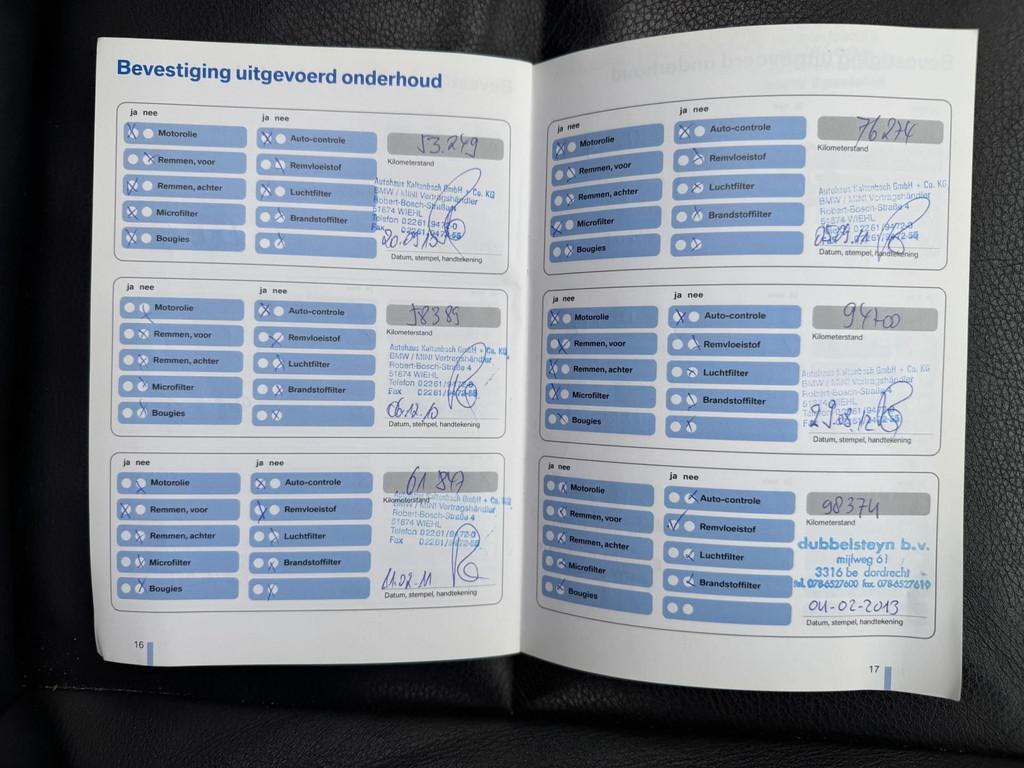 Bevestiging uitgevoerd onderhoud
ja nee
ja nee
Motorolie
Auto-controle
53.249
Remmen, voor
Remvloeistof
Kilometerstand
Remmen, achter
Luchtfilter
Microfilter
Brandstoffilter
Bougies
Autohaus Kaltenbach GmbH + Co. KG
BMW / MINI Vertragshändler
Robert-Bosch-Straße 4
51674 WIEHL
Telefon 02261/9472-0
Fax 02261/9472-55
Datum, stempel, handtekening
ja nee
ja nee
Motorolie
Auto-controle
58389
Remmen, voor
Remvloeistof
Kilometerstand
Remmen, achter
Luchtfilter
Microfilter
Brandstoffilter
Bougies
Autohaus Kaltenbach GmbH + Co. KG
BMW / MINI Vertragshändler
Robert-Bosch-Straße 4
51674 WIEHL
Telefon 02261/9472-0
Fax 02261/9472-55
06.12.10
Datum, stempel, handtekening
ja nee
ja nee
Motorolie
Auto-controle
61.847
Remmen, voor
Remvloeistof
Kilometerstand
Remmen, achter
Luchtfilter
Microfilter
Brandstoffilter
Bougies
Autohaus Kaltenbach GmbH + Co. KG
BMW / MINI Vertragshändler
Robert-Bosch-Straße 4
51674 WIEHL
Telefon 02261/9472-0
Fax 02261/9472-55
11.02.11
Datum, stempel, handtekening
16
ja nee
ja nee
Motorolie
Auto-controle
76274
Remmen, voor
Remvloeistof
Kilometerstand
Remmen, achter
Luchtfilter
Microfilter
Brandstoffilter
Bougies
Autohaus Kaltenbach GmbH + Co. KG
BMW / MINI Vertragshändler
Robert-Bosch-Straße 4
51674 WIEHL
02261/9472-0
02261/9472-55
Datum, stempel, handtekening
ja nee
ja nee
Motorolie
Auto-controle
94700
Remmen, voor
Remvloeistof
Kilometerstand
Remmen, achter
Luchtfilter
Microfilter
Brandstoffilter
Bougies
Autohaus Kaltenbach GmbH + Co. KG
BMW / MINI Vertragshändler
Robert-Bosch-Straße 4
51674 WIEHL
29.08.12
Datum, stempel, handtekening
ja nee
ja nee
Motorolie
Auto-controle
98374
Remmen, voor
Remvloeistof
Kilometerstand
Remmen, achter
Luchtfilter
Microfilter
Brandstoffilter
Bougies
dubbelsteyn b.v.
mijlweg 61
3316 be dordrecht
tel. 078-6527600 fax. 078-6527619
04-02-2013
Datum, stempel, handtekening
17